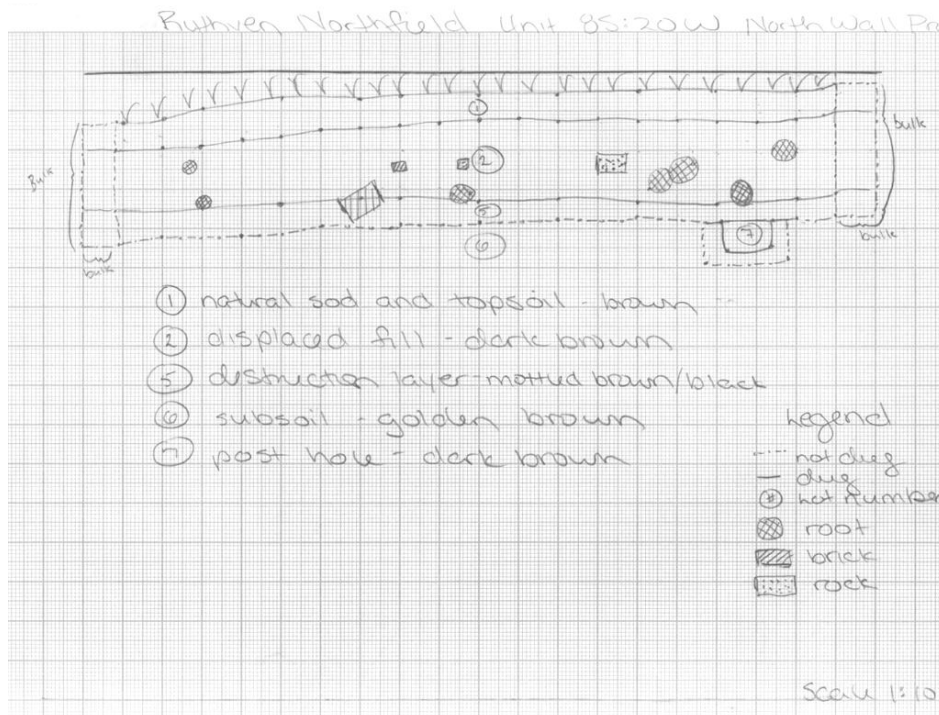 Ruthven Northfield Unit 85:20W North Wall Pro
①
bulk
Bulk
②
⑤
⑦
⑥
bulk
bulk
① natural sod and topsoil - brown
② displaced fill - dark brown
⑤ destruction layer - mottled brown/black
⑥ subsoil - golden brown
⑦ post hole - dark brown
Legend
not dug
dug
# lot number
root
brick
rock
Scale 1:10